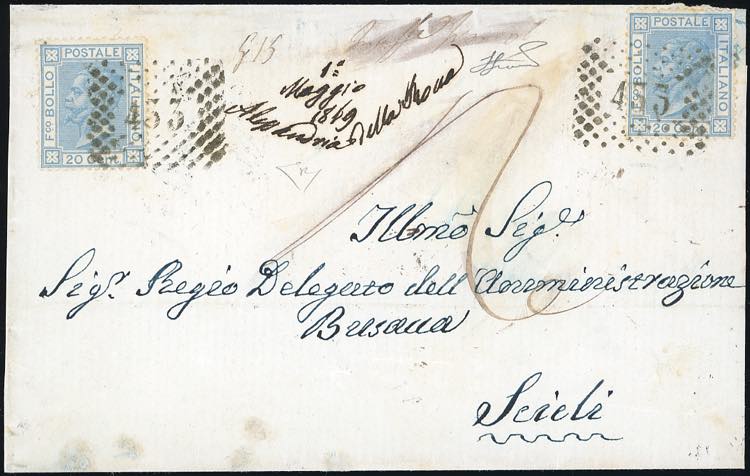 POSTALE
F.co BOLLO
ITALIANO
20 Cent.
POSTALE
F.co BOLLO
ITALIANO
20 C
1a
Maggio
1869
Alessandria della Rocca
Illmo Sigr.
Sigr. Regio Delegato dell'Amministrazione
Busaua
Scicli